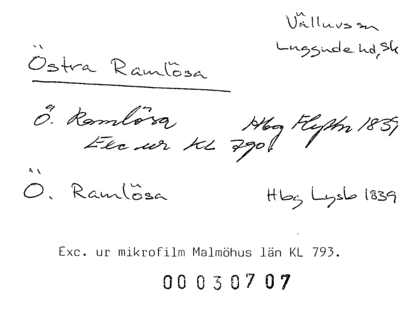 Välluvs sn
Luggude hd, Sk
Östra Ramlösa
Ö. Ramlösa Hbg 1839
Exc ur KL 790
Ö. Ramlösa Hbg Lysb 1839
Exc. ur mikrofilm Malmöhus län KL 793.
00030707